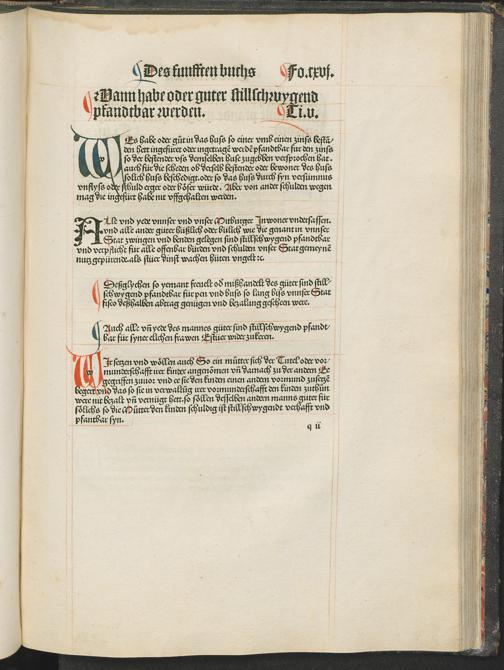 Des funfften buchs Fo.lxxvj.
Wann habe oder guter stillschwygend
pfandtbar werden. Ti.v.
WEs habe oder gůt in das huß so einer vmb einen zinß bestā-
den hett ingefüret oder ingetragē werdē pfandtbar für den zinß
so der bestender vß demselben huse zugeben versprochen hat.
auch für die scheden ob derselb bestender oder bewoner des huß
sollich huß beschedigt. oder so das huß durch syn versumnus
vnflyß oder schuld erger oder böser würde. Aber von ander schulden wegen
mag die ingefürt habe nit vffgehalten werden.
ALle vnd yede vnnser vnd vnser Mitburger Inwoner vndersassen.
vnd alle ander güter hüßlich oder büwlich wie die genant in vnnser
Stat zwingen vnd benden gelegen sind stillschwygend pfandtbar
vnd verpflicht für alle offenbar bürden vnd schulden vnser Stat gemeynē
nutz gepürende. als stüer dinst wachen hüten vngelt ꝛc.
Deßglychen so yemant freuelt od mißhandelt des güter sind still-
schwygend pfandtbar für pen vnd buß so lang biß vnnser Stat
fisco deßhalben abtrag genügen vnd bezalung geschehen were.
Auch alle vn̄ yede des mannes güter sind stillschwygend pfandt-
bar für syner elichen frawen Eestüer widerzukeren.
WIr setzen vnd wöllen auch So ein můtter sich der Tutel oder vor-
munderschafft irer kinder angenomen vn̄ darnach zu der andern Ee
gegriffen zuuor vnd ee sie den kinden einen andern vormund zusetzē
begert vnd das so sie in verwaltūg irer vormunderschafft den kinden zuthůn
were nit bezalt vn̄ vernügt hett. so söllen desselben andern manns güter für
söllichs so die Můtter den kinden schuldig ist stillschwygende verhafft vnd
pfantbar syn.
q ii